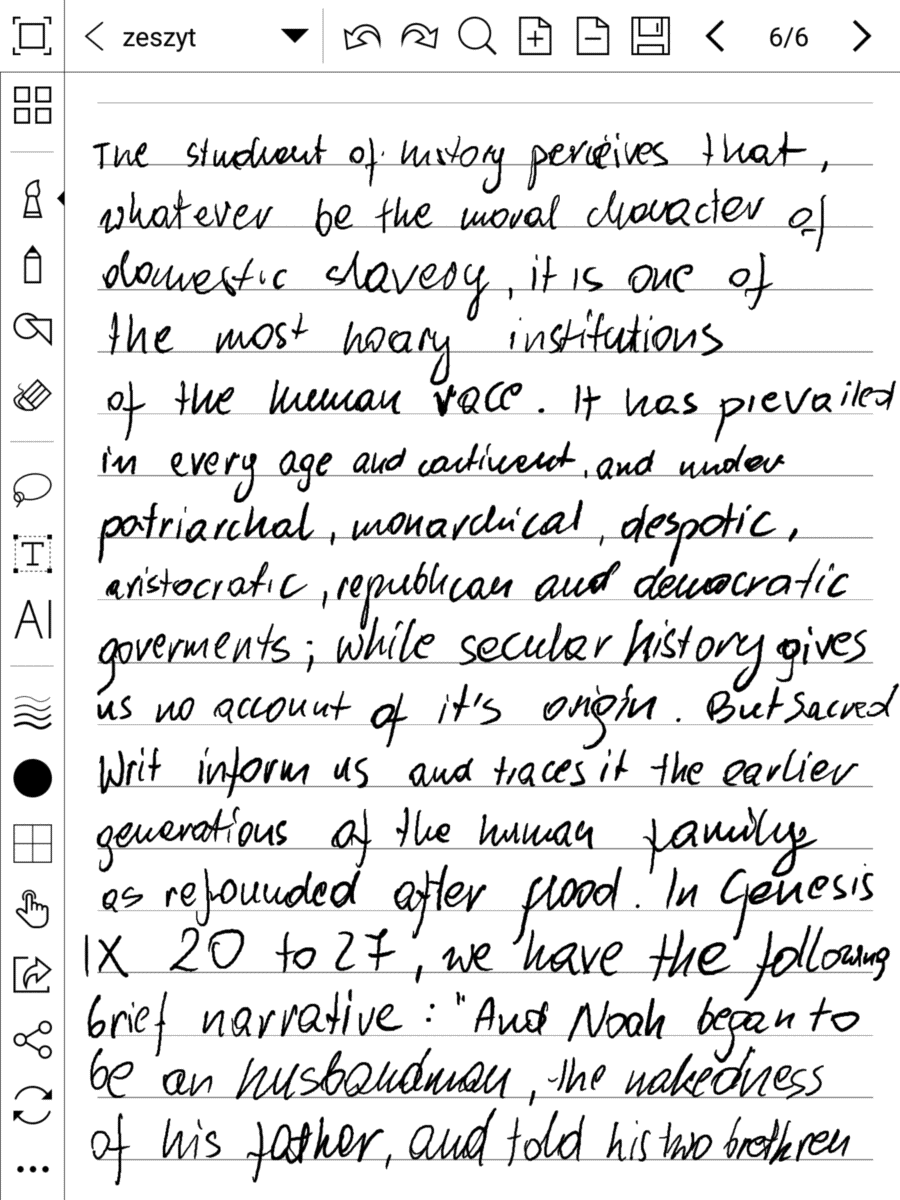 zeszyt 6/6
The studient of history perceives that,
whatever be the moral character of
domestic slavery, it is one of
the most hoary institutions
of the human race. It has prevailed
in every age and continent, and under
patriarchal, monarchical, despotic,
aristocratic, republican and democratic
goverments; while secular history gives
us no account of it's origin. But Sacred
Writ inform us and traces it the earlier
generations of the human family
as refounded after flood. In Genesis
IX 20 to 27, we have the following
brief narrative: "And Noah began to
be an husbandman, the nakedness
of his father, and told his two brethren
T
AI